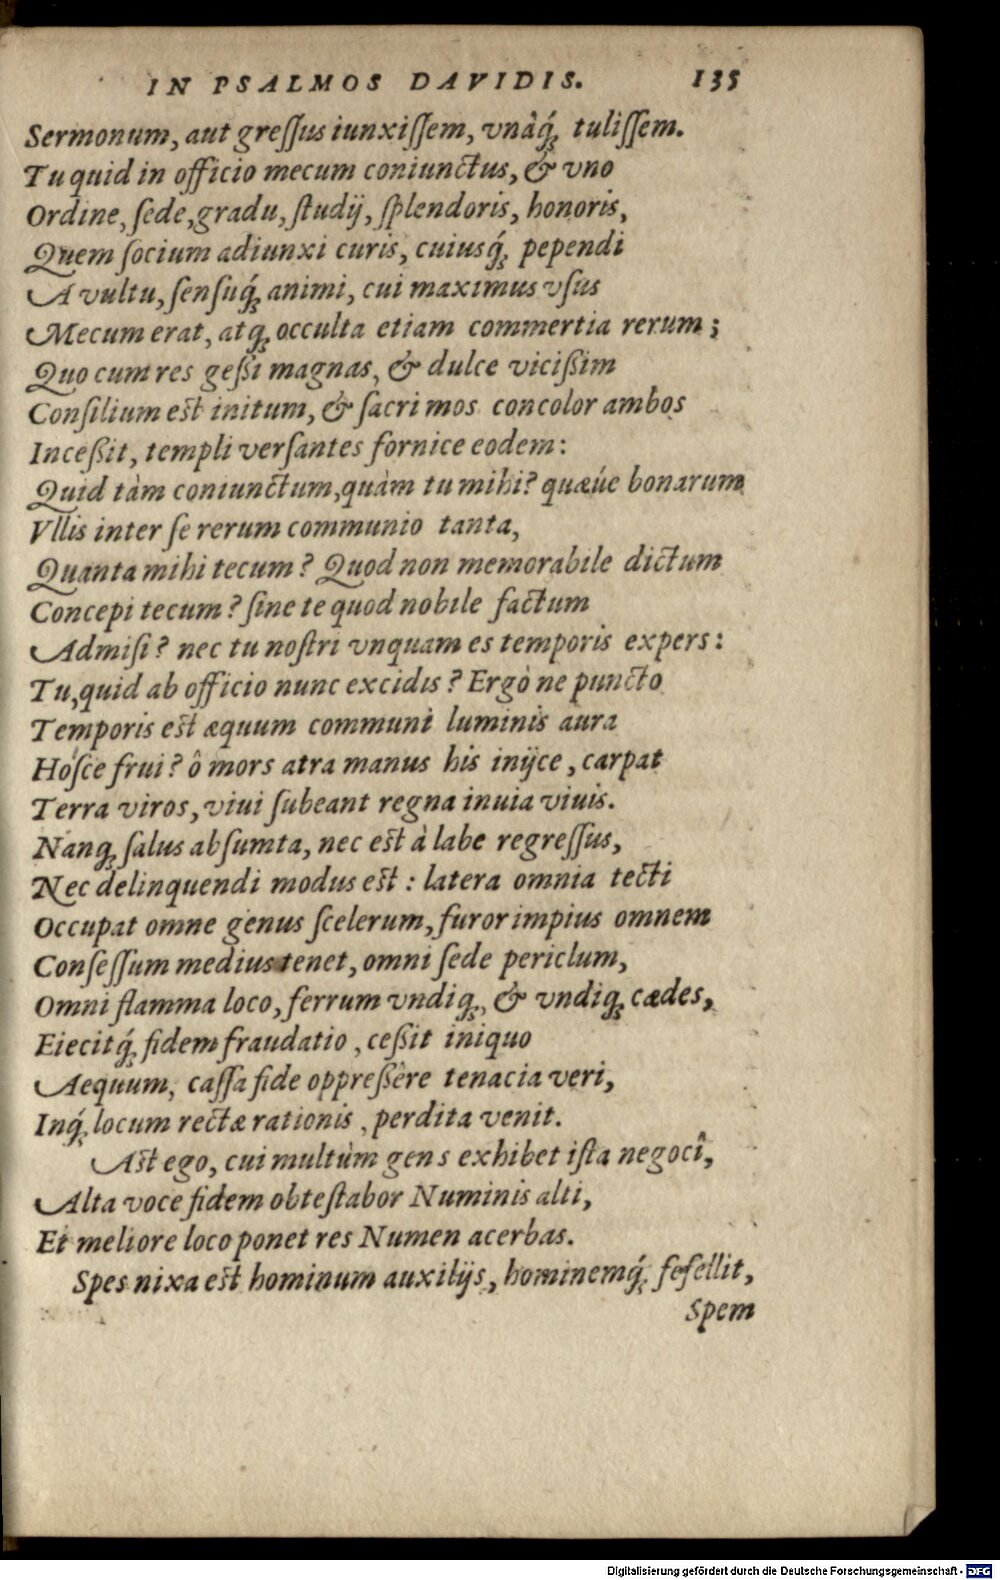 IN PSALMOS DAVIDIS. 135
Sermonum, aut greſſus iunxiſſem, vnàq́; tuliſſem.
Tu quid in officio mecum coniunctus, & vno
Ordine, ſede, gradu, ſtudij, ſplendoris, honoris,
Quem ſocium adiunxi curis, cuiusq́; pependi
A vultu, ſenſuq́; animi, cui maximus vſus
Mecum erat, atq; occulta etiam commertia rerum;
Quo cum res geßi magnas, & dulce vicißim
Conſilium est initum, & ſacri mos concolor ambos
Inceßit, templi verſantes fornice eodem:
Quid tàm coniunctum, quàm tu mihi? quæúe bonarum
Vllis inter ſe rerum communio tanta,
Quanta mihi tecum? Quod non memorabile dictum
Concepi tecum? ſine te quod nobile factum
Admiſi? nec tu noſtri vnquam es temporis expers:
Tu, quid ab officio nunc excidis? Ergò ne puncto
Temporis est æquum communi luminis aura
Hoſce frui? ô mors atra manus his inijce, carpat
Terra viros, viui ſubeant regna inuia viuis.
Nanq; ſalus abſumta, nec est à labe regreſſus,
Nec delinquendi modus est: latera omnia tecti
Occupat omne genus ſcelerum, furor impius omnem
Conſeſſum medius tenet, omni ſede periclum,
Omni flamma loco, ferrum vndiq;, & vndiq; cædes,
Eiecitq́; fidem fraudatio, ceßit iniquo
Aequum, caſſa fide oppreßêre tenacia veri,
Inq́; locum rectæ rationis, perdita venit.
Ast ego, cui multùm gens exhibet iſta negocî,
Alta voce fidem obteſtabor Numinis alti,
Et meliore loco ponet res Numen acerbas.
Spes nixa est hominum auxilijs, hominemq́; fefellit,
Spem
Digitalisierung gefördert durch die Deutsche Forschungsgemeinschaft - DFG